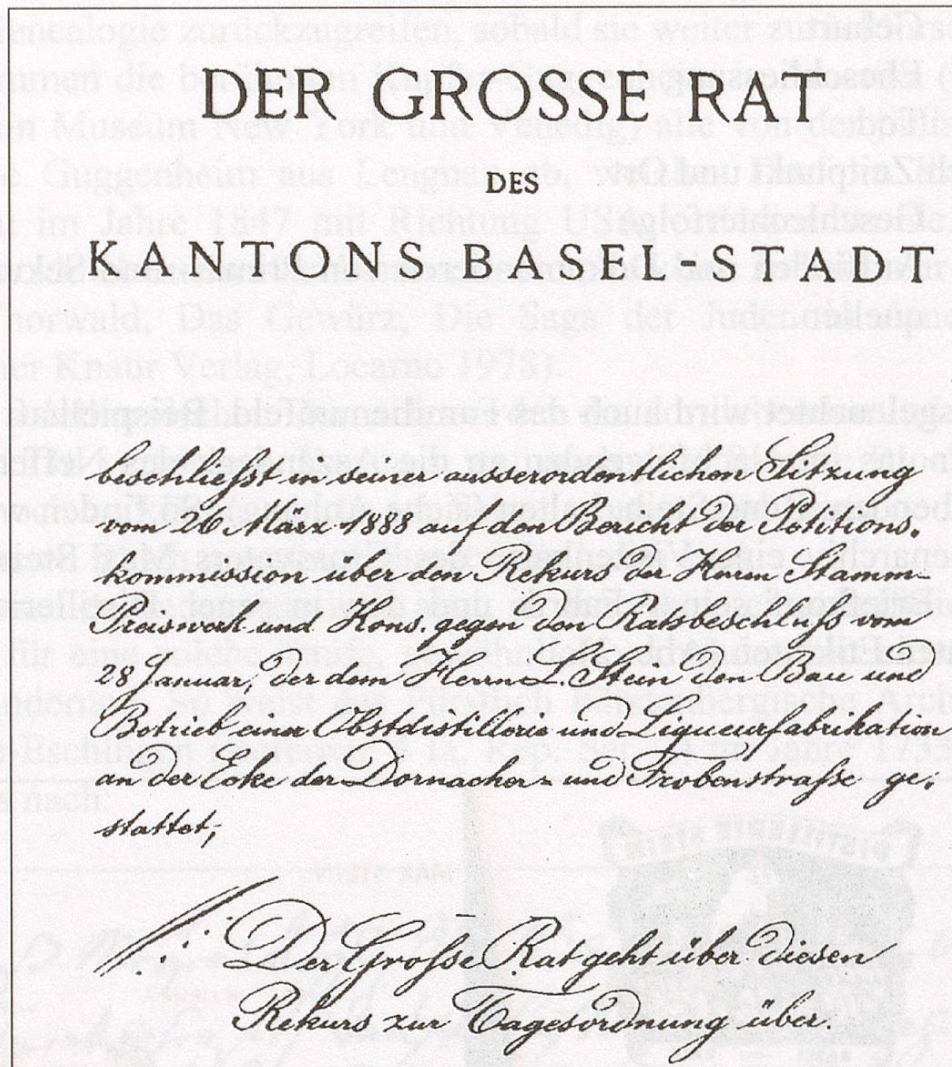 DER GROSSE RAT
DES
KANTONS BASEL=STADT
beschließt in seiner ausserordentlichen Sitzung
vom 26 März 1888 auf den Bericht der Petitions-
kommission über den Rekurs der Herrn Stamm-
Preiswerk und Kons. gegen den Ratsbeschluß vom
28 Januar, der dem Herrn L. Stein den Bau und
Betrieb einer Obstdistillerie und Liqueurfabrikation
an der Ecke der Dornacher- und Frobenstraße ge-
stattet;
Der Große Rat geht über diesen
Rekurs zur Tagesordnung über.